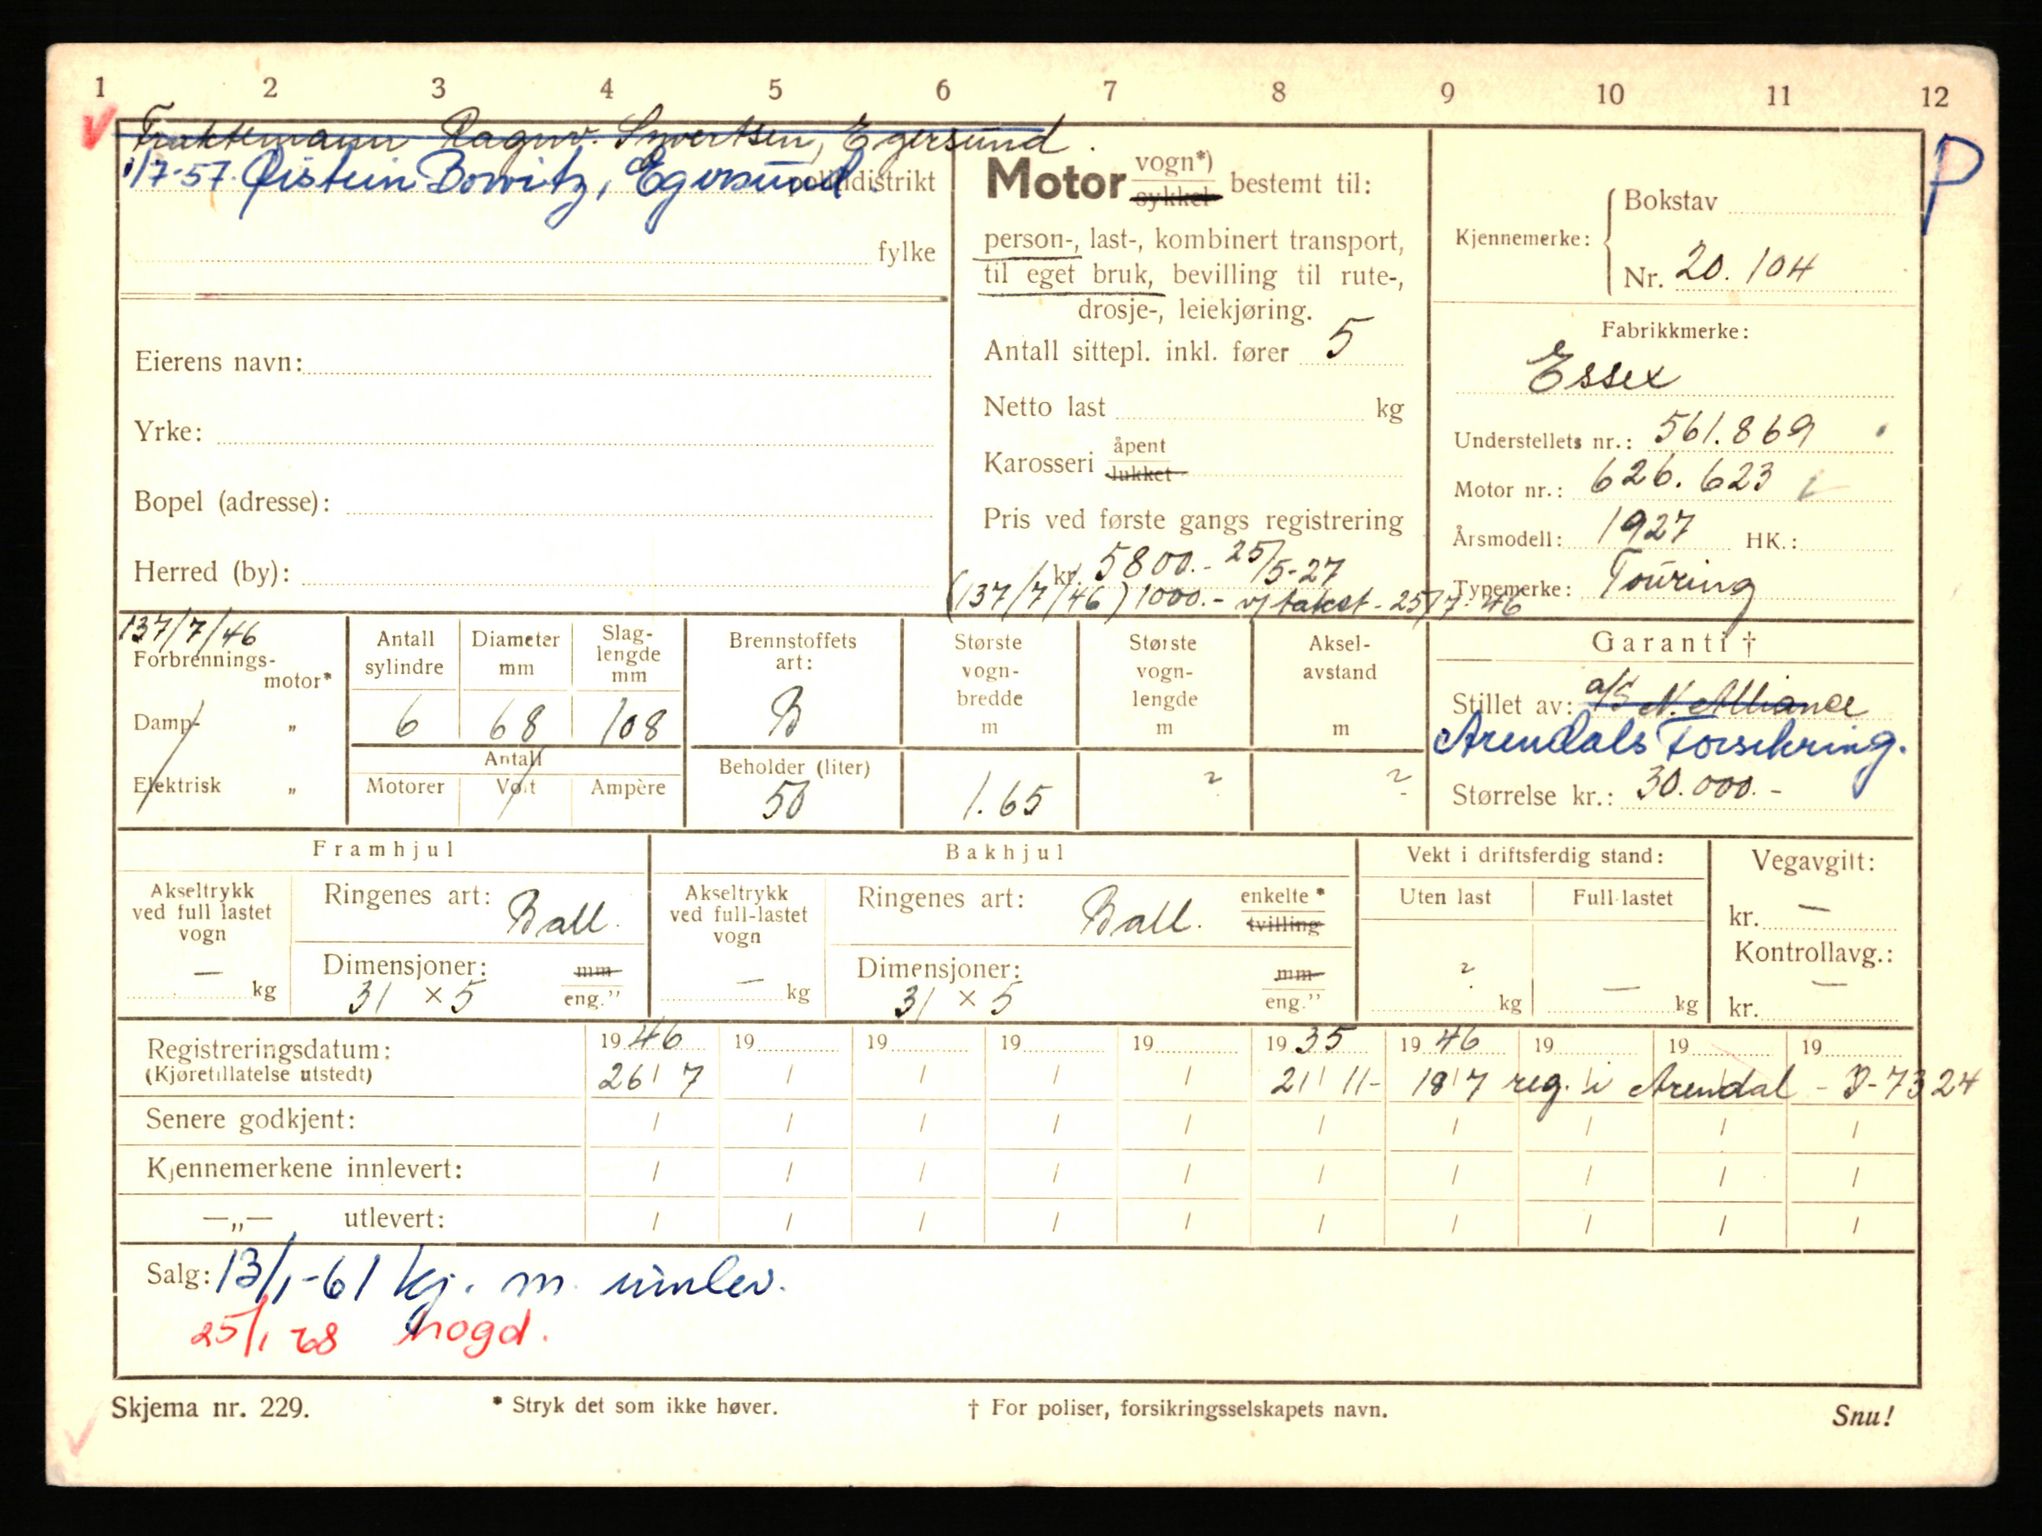 1 2 3 4 5 6 7 8 9 10 11 12
Fraktemann Ragnv. Syvertsen, Egersund.
1/7-57. Øistein Bowitz, Egersund. politidistrikt
fylke
Eierens navn:
Yrke:
Bopel (adresse):
Herred (by):
Motor vogn*) sykkel bestemt til:
person-, last-, kombinert transport,
til eget bruk, bevilling til rute-,
drosje-, leiekjøring.
Antall sittepl. inkl. fører 5
Netto last kg
Karosseri åpent lukket
Pris ved første gangs registrering
kr. 5800.- 25/5-27
(137/7/46) 1000.- v/ takst - 25/7-46
P
Kjennemerke: Bokstav
Nr. 20.104
Fabrikkmerke:
Essex
Understellets nr.: 561.869
Motor nr.: 626.623
Årsmodell: 1927 HK.:
Typemerke: Touring
137/7/46
Forbrennings-
motor*
Damp- „
Elektrisk „
Antall sylindre
6
Diameter mm
68
Slag-
lengde
mm
108
Antall
Motorer Volt Ampère
Brennstoffets
art:
B
Beholder (liter)
50
Største
vogn-
bredde
m
1.65
Største
vogn-
lengde
m
?
Aksel-
avstand
m
?
Garanti †
Stillet av: a/S N. Alliance
Arendals Forsikring.
Størrelse kr.: 30.000.-
Framhjul
Akseltrykk
ved full lastet
vogn
— kg
Ringenes art: Ball.
Dimensjoner: mm
31 × 5 eng.”
Bakhjul
Akseltrykk
ved full-lastet
vogn
— kg
Ringenes art: Ball. enkelte* tvilling
Dimensjoner: mm
31 × 5 eng.”
Vekt i driftsferdig stand:
Uten last Full-lastet
? kg — kg
Vegavgift:
kr. —
Kontrollavg.:
kr. —
Registreringsdatum: 19 46 19 19 19 19 19 35 19 46 19 19 19
(Kjøretillatelse utstedt) 26/7 / / / / 21/11- 18/7 reg. i Arendal - I-7324
Senere godkjent: / / / / / / / / / /
Kjennemerkene innlevert: / / / / / / / / / /
—„— utlevert: / / / / / / / / / /
Salg: 13/1-61 kj. m. innlev.
25/1 68 hogd.
Skjema nr. 229. * Stryk det som ikke høver. † For poliser, forsikringsselskapets navn. Snu!